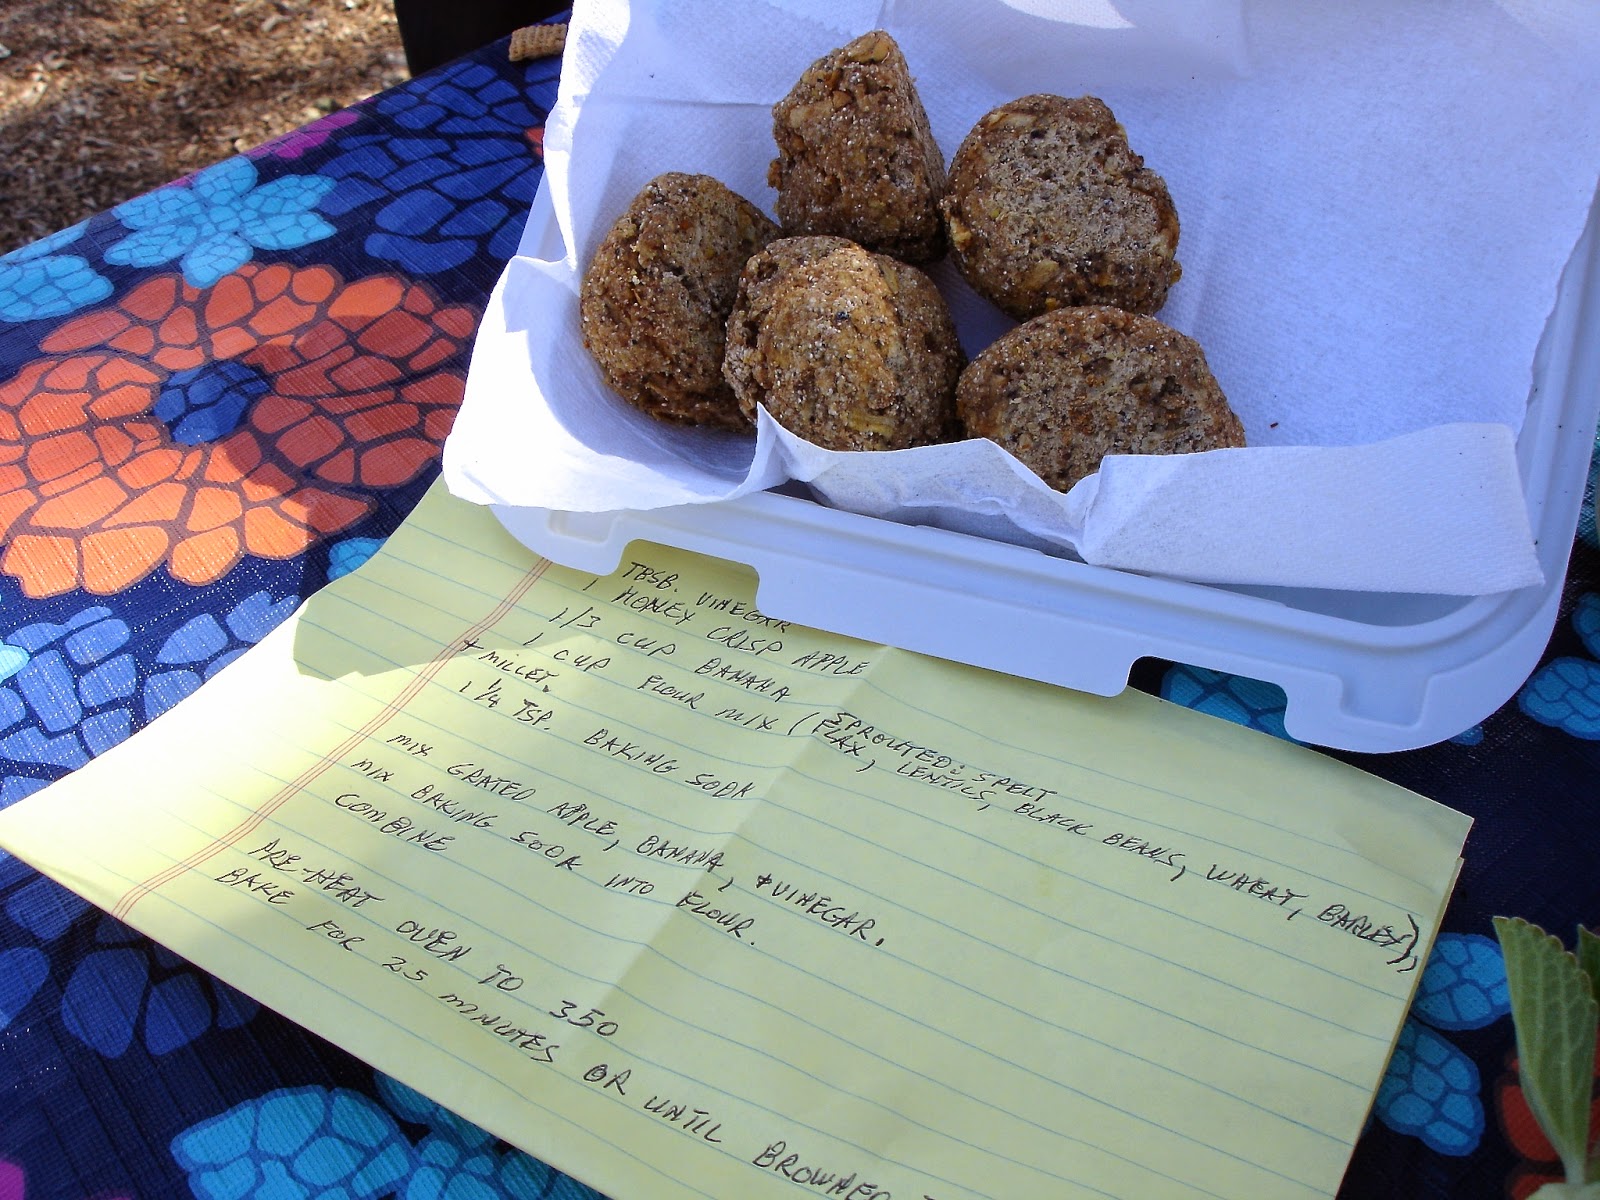 1 TBSB. VINEGAR
1 HONEY CRISP APPLE
1/3 CUP BANANA
1 CUP FLOUR MIX (SPROUTED: SPELT
FLAX, LENTILS, BLACK BEANS, WHEAT, BARLEY),
+ MILLET.
1 1/4 TSP. BAKING SODA
MIX GRATED APPLE, BANANA, + VINEGAR.
MIX BAKING SODA INTO FLOUR.
COMBINE
PRE-HEAT OVEN TO 350
BAKE FOR 25 MINUTES OR UNTIL BROWNED